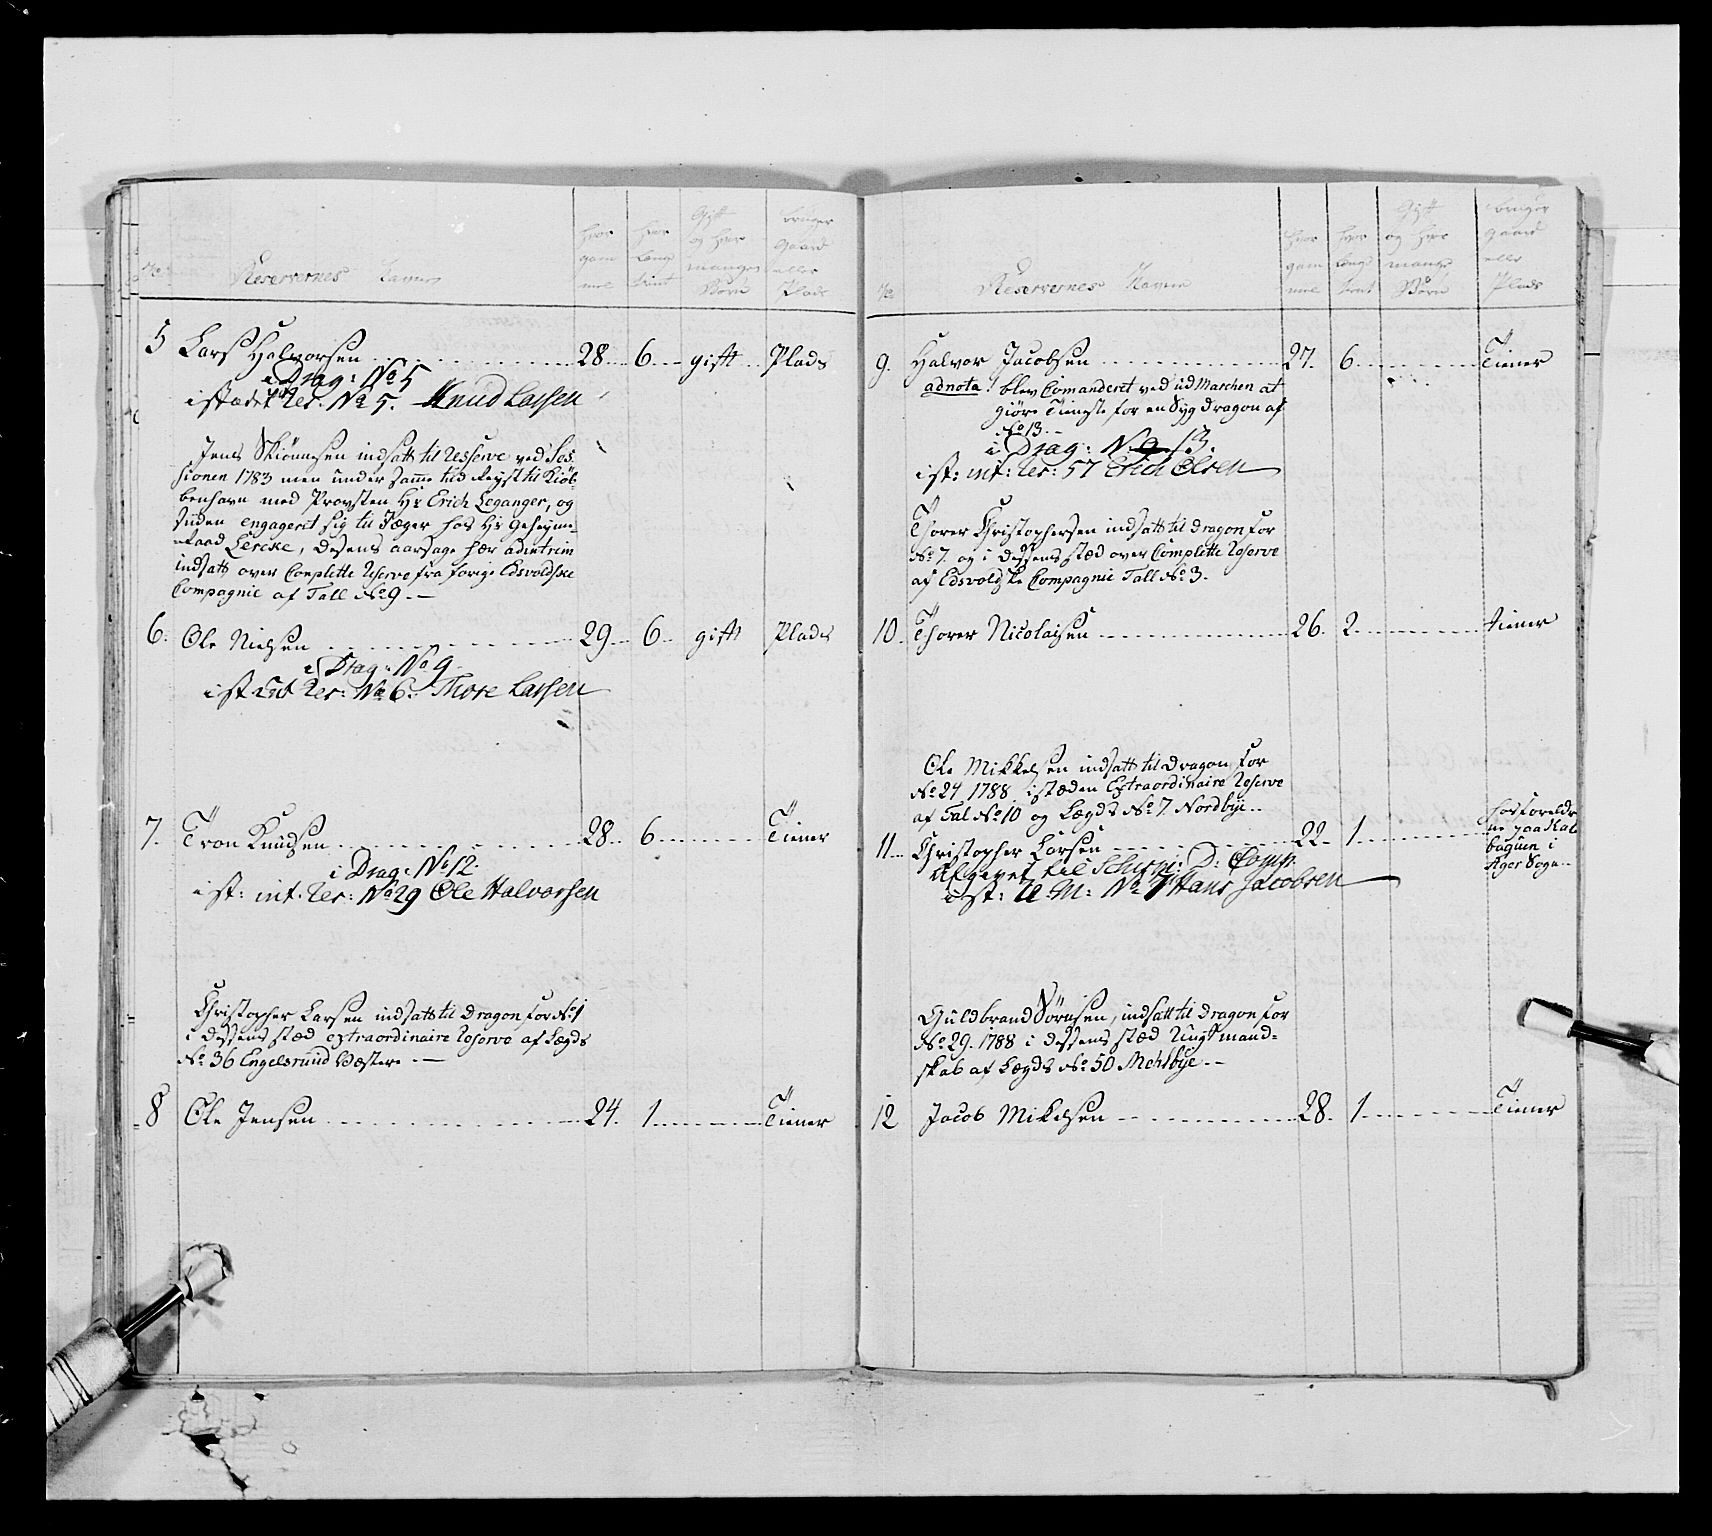 No Reservernes Navne
hvor gam mel
hvor længe tient
Gift og hvor mange Børn
bruger Gaard eller Plads
5 Lars Halvorsen 28 6 gift Plads
i Drag: No 5
istædet Res: No 5. Knud Larsen
Jens Skiønnesen indsatt til Resserve ved Ses-
sionen 1783 men under samme tid Reyst til Kiöb-
benhavn med Provsten Hr Erich Leganger, og
siiden engagerit sig til Jæger hos Hr Geheyme-
Raad Lercke, desens aarsage hær adintrim
indsatt over Conplette Reserve fra forige Edsvoldske
Compagnie af Tall No 9.
6. Ole Nielsen 29 6 gift Plads
i Drag: No 9
i st int Res: No 6. Thore Larsen
7. Tron Knudsen 28 6 Tiener
i Drag: No 12
i st: int. Res: No 29 Ole Halvorsen
Christopher Larsen indsatt til Dragon for No 1
i dessens stæd extraordinaire Reserve af Lægds
No 36 Engelsrund Wæstere
8 Ole Jensen 24. 1 Tiener
No Reservernes Navne
hvor gam mel
hvor længe tient
Gift og hvor mange Børn
bruger gaard eller Plads
9. Halvor Jacobsen 27. 6 Tiener
adnota! blev Comanderet ved ud Marchen at
giöre Tieneste for en Syg dragon af
No 13.
i Drag: No 13.
i st: int: Res: 57 Erich Olsen
Thorer Christophersen indsatt til dragon for
No 7. og i dessens stæd over Complette Reserve
af Edsvoldske Compagnie Tall No 3.
10. Thorer Nicolaisen 26. 2 tiener
Ole Mikkelsen indsatt til Dragon for
No 24 1788 i stæden Extraordinaire Reserve
af Tal No 10 og Lægds No 7 Nordbye
11. Christopher Larsen 22. 1 hos foreldr
ne paa Kal
baguen i
Ager Sogn
Afgivet til Schirpi: D: Comp.
i st: U: M: No 7 Hans Jacobsen
Guldbrand Sörnsen, indsatt til dragon for
No 29. 1788 i dessens stæd Ungt mand-
skab af Lægds No 50 Mehlbye
12 Jacob Mikelsen 28. 1 Tiener